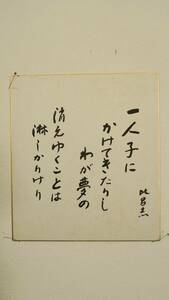 一人子に
かけてきたりし
わが夢の
消えゆくことは
淋しかりけり